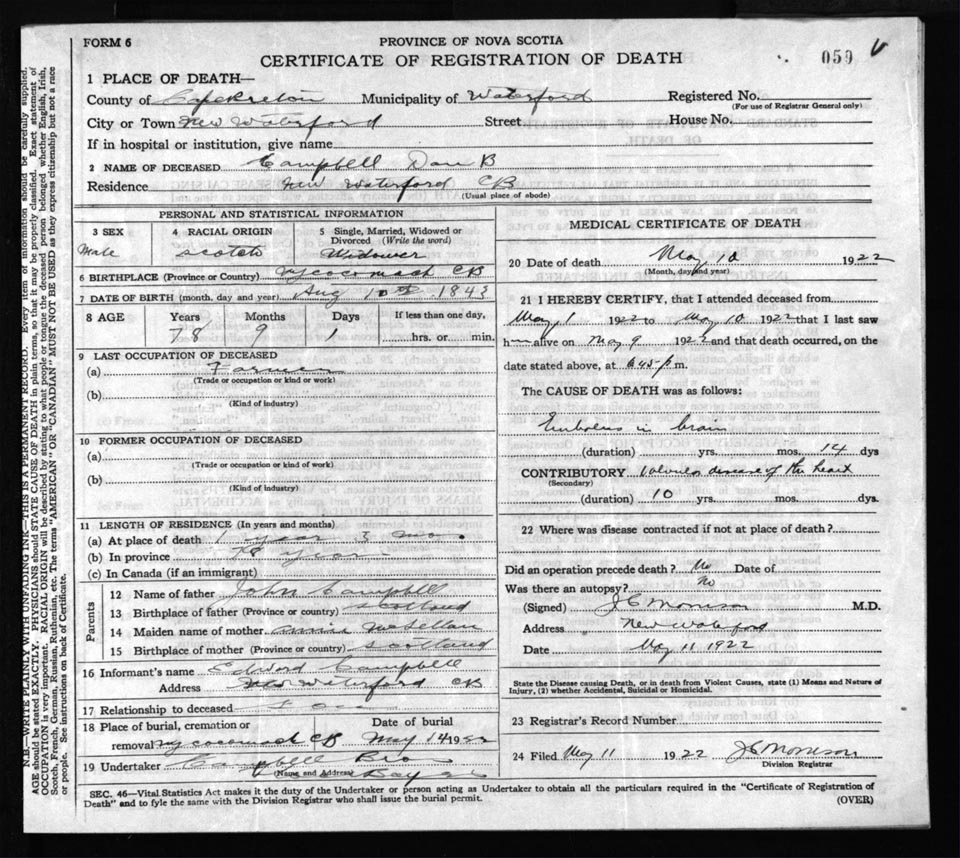 FORM 6
PROVINCE OF NOVA SCOTIA
CERTIFICATE OF REGISTRATION OF DEATH
059
1 PLACE OF DEATH—
County of Cape Breton Municipality of Waterford Registered No.
(For use of Registrar General only)
City or Town New Waterford Street House No.
If in hospital or institution, give name
2 NAME OF DECEASED Campbell Dan B
Residence New Waterford CB
(Usual place of abode)
PERSONAL AND STATISTICAL INFORMATION
3 SEX 4 RACIAL ORIGIN 5 Single, Married, Widowed or Divorced (Write the word)
Male Scotch Widower
6 BIRTHPLACE (Province or Country) Wycocomach CB
7 DATE OF BIRTH (month, day and year) Aug 10th 1843
8 AGE Years Months Days If less than one day,
78 9 1 hrs. or min.
9 LAST OCCUPATION OF DECEASED
(a) Farmer
(Trade or occupation or kind or work)
(b)
(Kind of industry)
10 FORMER OCCUPATION OF DECEASED
(a)
(Trade or occupation or kind of work)
(b)
(Kind of industry)
11 LENGTH OF RESIDENCE (In years and months)
(a) At place of death 1 year 3 mo.
(b) In province 78 year
(c) In Canada (if an immigrant)
Parents
12 Name of father John Campbell
13 Birthplace of father (Province or country) Scotland
14 Maiden name of mother Annie McLellan
15 Birthplace of mother (Province or country) Scotland
16 Informant's name Edword Campbell
Address New Waterford CB
17 Relationship to deceased
18 Place of burial, cremation or Date of burial
removal Wycocomach CB May 14 1922
19 Undertaker Campbell Bro
(Name and Address)
MEDICAL CERTIFICATE OF DEATH
20 Date of death May 10 1922
(Month, day and year)
21 I HEREBY CERTIFY, that I attended deceased from
May 1 1922 to May 10 1922 that I last saw
him alive on May 9 1922 and that death occurred, on the
date stated above, at 6 45 p m.
The CAUSE OF DEATH was as follows:
Embolus in brain
(duration) yrs. mos. 14 dys
CONTRIBUTORY Valvular disease of the heart
(Secondary)
(duration) 10 yrs. mos. dys.
22 Where was disease contracted if not at place of death?
Did an operation precede death? No Date of
Was there an autopsy? No
(Signed) J C Morrison M.D.
Address New Waterford
Date May 11 1922
State the Disease causing Death, or in death from Violent Causes, state (1) Means and Nature of
Injury, (2) whether Accidental, Suicidal or Homicidal.
23 Registrar's Record Number
24 Filed May 11 1922 J C Morrison
Division Registrar
SEC. 46—Vital Statistics Act makes it the duty of the Undertaker or person acting as Undertaker to obtain all the particulars required in the "Certificate of Registration of
Death" and to fyle the same with the Division Registrar who shall issue the burial permit.
(OVER)
N.B.—WRITE PLAINLY WITH UNFADING INK—THIS IS A PERMANENT RECORD. Every item of information should be carefully supplied.
AGE should be stated EXACTLY. PHYSICIANS should STATE CAUSE OF DEATH in plain terms, so that it may be properly classified. Exact statement of
OCCUPATION is very important. RACIAL ORIGIN will be described by stating to what people or tongue the deceased person belonged whether English, Irish,
Scotch, French, German, Russian, Ruthenian, etc. The terms "AMERICAN" OR "CANADIAN" MUST NOT BE USED as they express citizenship but not a race
or people. See instructions on back of Certificate.